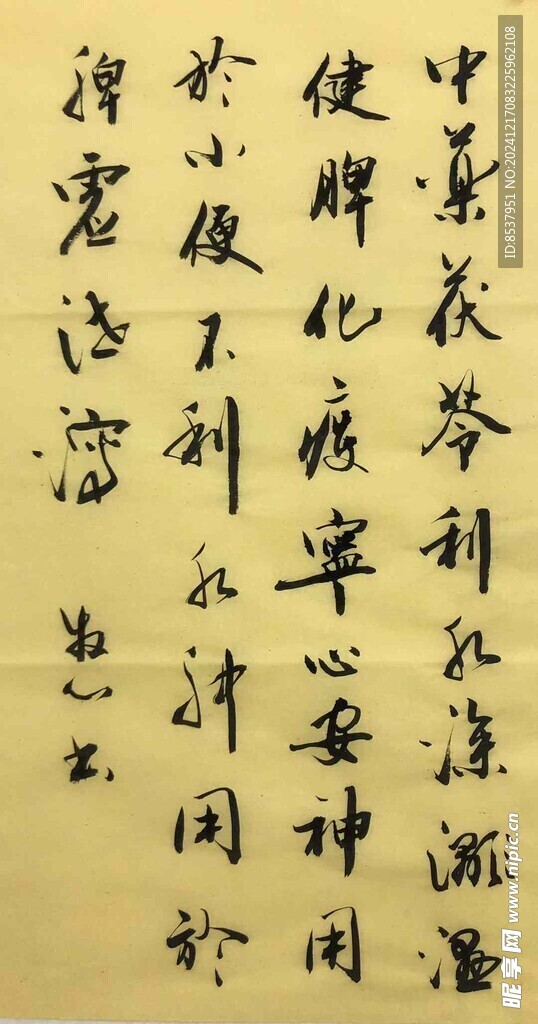 中藥茯苓利水滲濕温
健脾化痰寧心安神用
於小便不利水肿用於
脾虚泄瀉 书
ID:8537951 NO:20241217083225962108
昵享网 www.nipic.cn